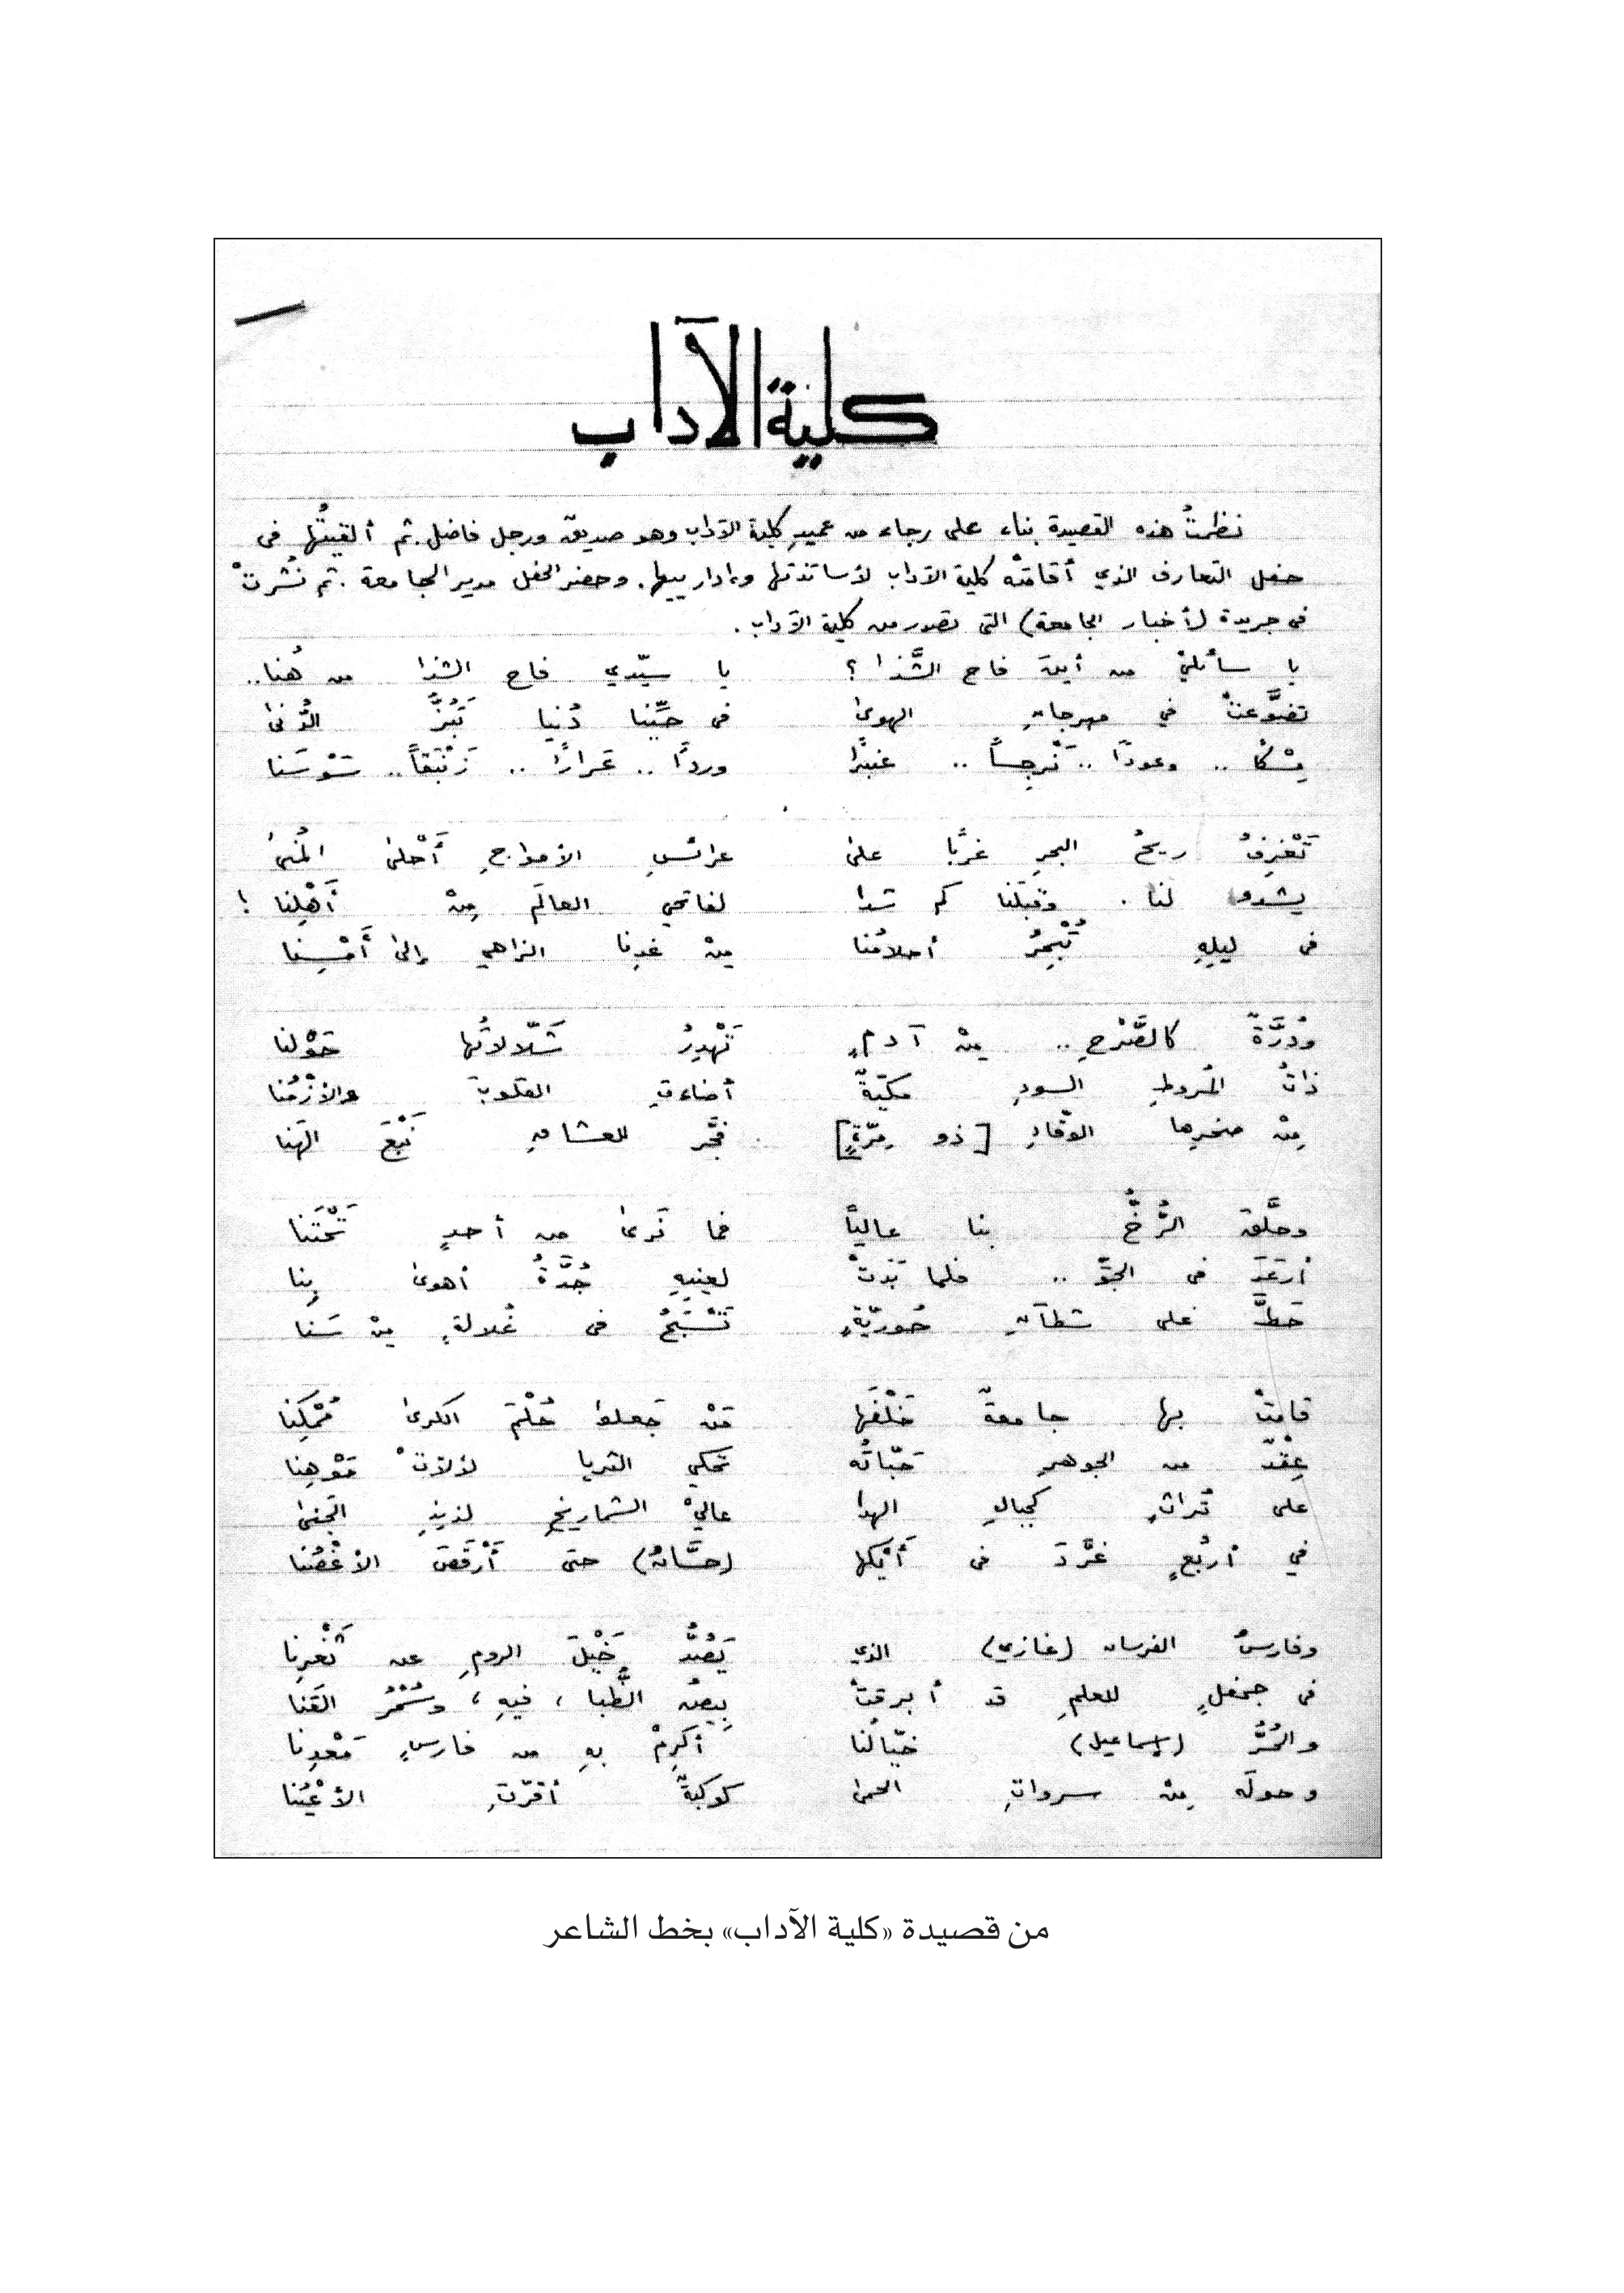 كلية الآداب
نظمتُ هذه القصيدة بناء على رجاء من عميدِ كلية الآداب وهو صديق ورجل فاضل. ثم ألقيتُها فى
حفل التعارف الذي أقامتْه كلية الآداب لأساتذتها وإدارييها. وحضر الحفل مدير الجامعة. ثم نُشرتْ
فى جريدة (أخبار الجامعة) التى تصدر من كلية الآداب.
يا سائلي من أينَ فاح الشَّذا ؟ يا سيّدي فاح الشذا من هُنا..
تضوَّعتْ في مهرجانِ الهوىٰ فى حيِّنا دُنيا تَبُزُّ الدُّنىٰ
مِسْكًا .. وعودًا .. نَرْجِساً .. عنبرًا وردًا .. عَرارًا .. زَنْبَقاً .. سَوْسَنا
تَعْزِفُ ريحُ البحرِ غربًا علىٰ عرائسِ الأمواجِ أَحْلىٰ المُنىٰ
يشدو لنا . وقبلَنا كم شدا لفاتحي العالَم مِنْ أَهْلِنا !
فى ليلِهِ تُبْحِرُ أحلامُنا مِنْ غدِنا الزاهي إلىٰ أَمْسِنا
ودُرَّةٌ كالصَّرْحِ .. مِنْ آدمٍ تَهْدِرُ شَلّالاتُها حَوْلنا
ذاتُ المُروطِ السودِ مكيّةٌ أضاءتِ القلوبَ والأزْمُنا
مِنْ صخرِها الوقّادِ [ذو مِرّةٍ] فجَّر للعشاقِ نَبْعَ الهَنا
وحلَّقَ الرُّخُّ بنا عالياً فما نَرىٰ من أحدٍ تَحْتَنا
أرعَدَ فى الجوِّ .. فلما بَدَتْ لعينِهِ جُدَّةُ أهوىٰ بِنا
حَطَّ على شطآنِ حُوريّةٍ تَسْبَحُ فى غُلالةٍ مِنْ سَنا
قامتْ بها جامعةٌ خَلْفَها مَنْ جَعلوا حُلْمَ الكرىٰ مُمْكِنا
عِقْدٌ من الجوهرِ حَبّاتُه تحكي الثريا لألأتْ مَوْهِنا
على تُراثٍ كجبالِ الهدا عاليْ الشماريخِ لذيذِ الجَنىٰ
في أربُعٍ غرَّدَ فى أَيْكِها (حسَّانُ) حتى أَرْقَصَ الأغْصُنا
وفارسُ الفرسان (غازي) الذي يَصُدُّ خَيْلَ الرومِ عن ثَغْرِنا
فى جحفلٍ للعلمِ قد أبرقتْ بِيضُ الظُّبا ، فيهِ ، وسُمْرُ القَنا
والحُرُّ (إسماعيل) خيّالُنا أكرِمْ بهِ من فارسٍ مَعْدِنا
وحولَه مِنْ سرواتِ الحمىٰ كوكبةٌ أقرّتِ الأعْيُنا
من قصيدة «كلية الآداب» بخط الشاعر